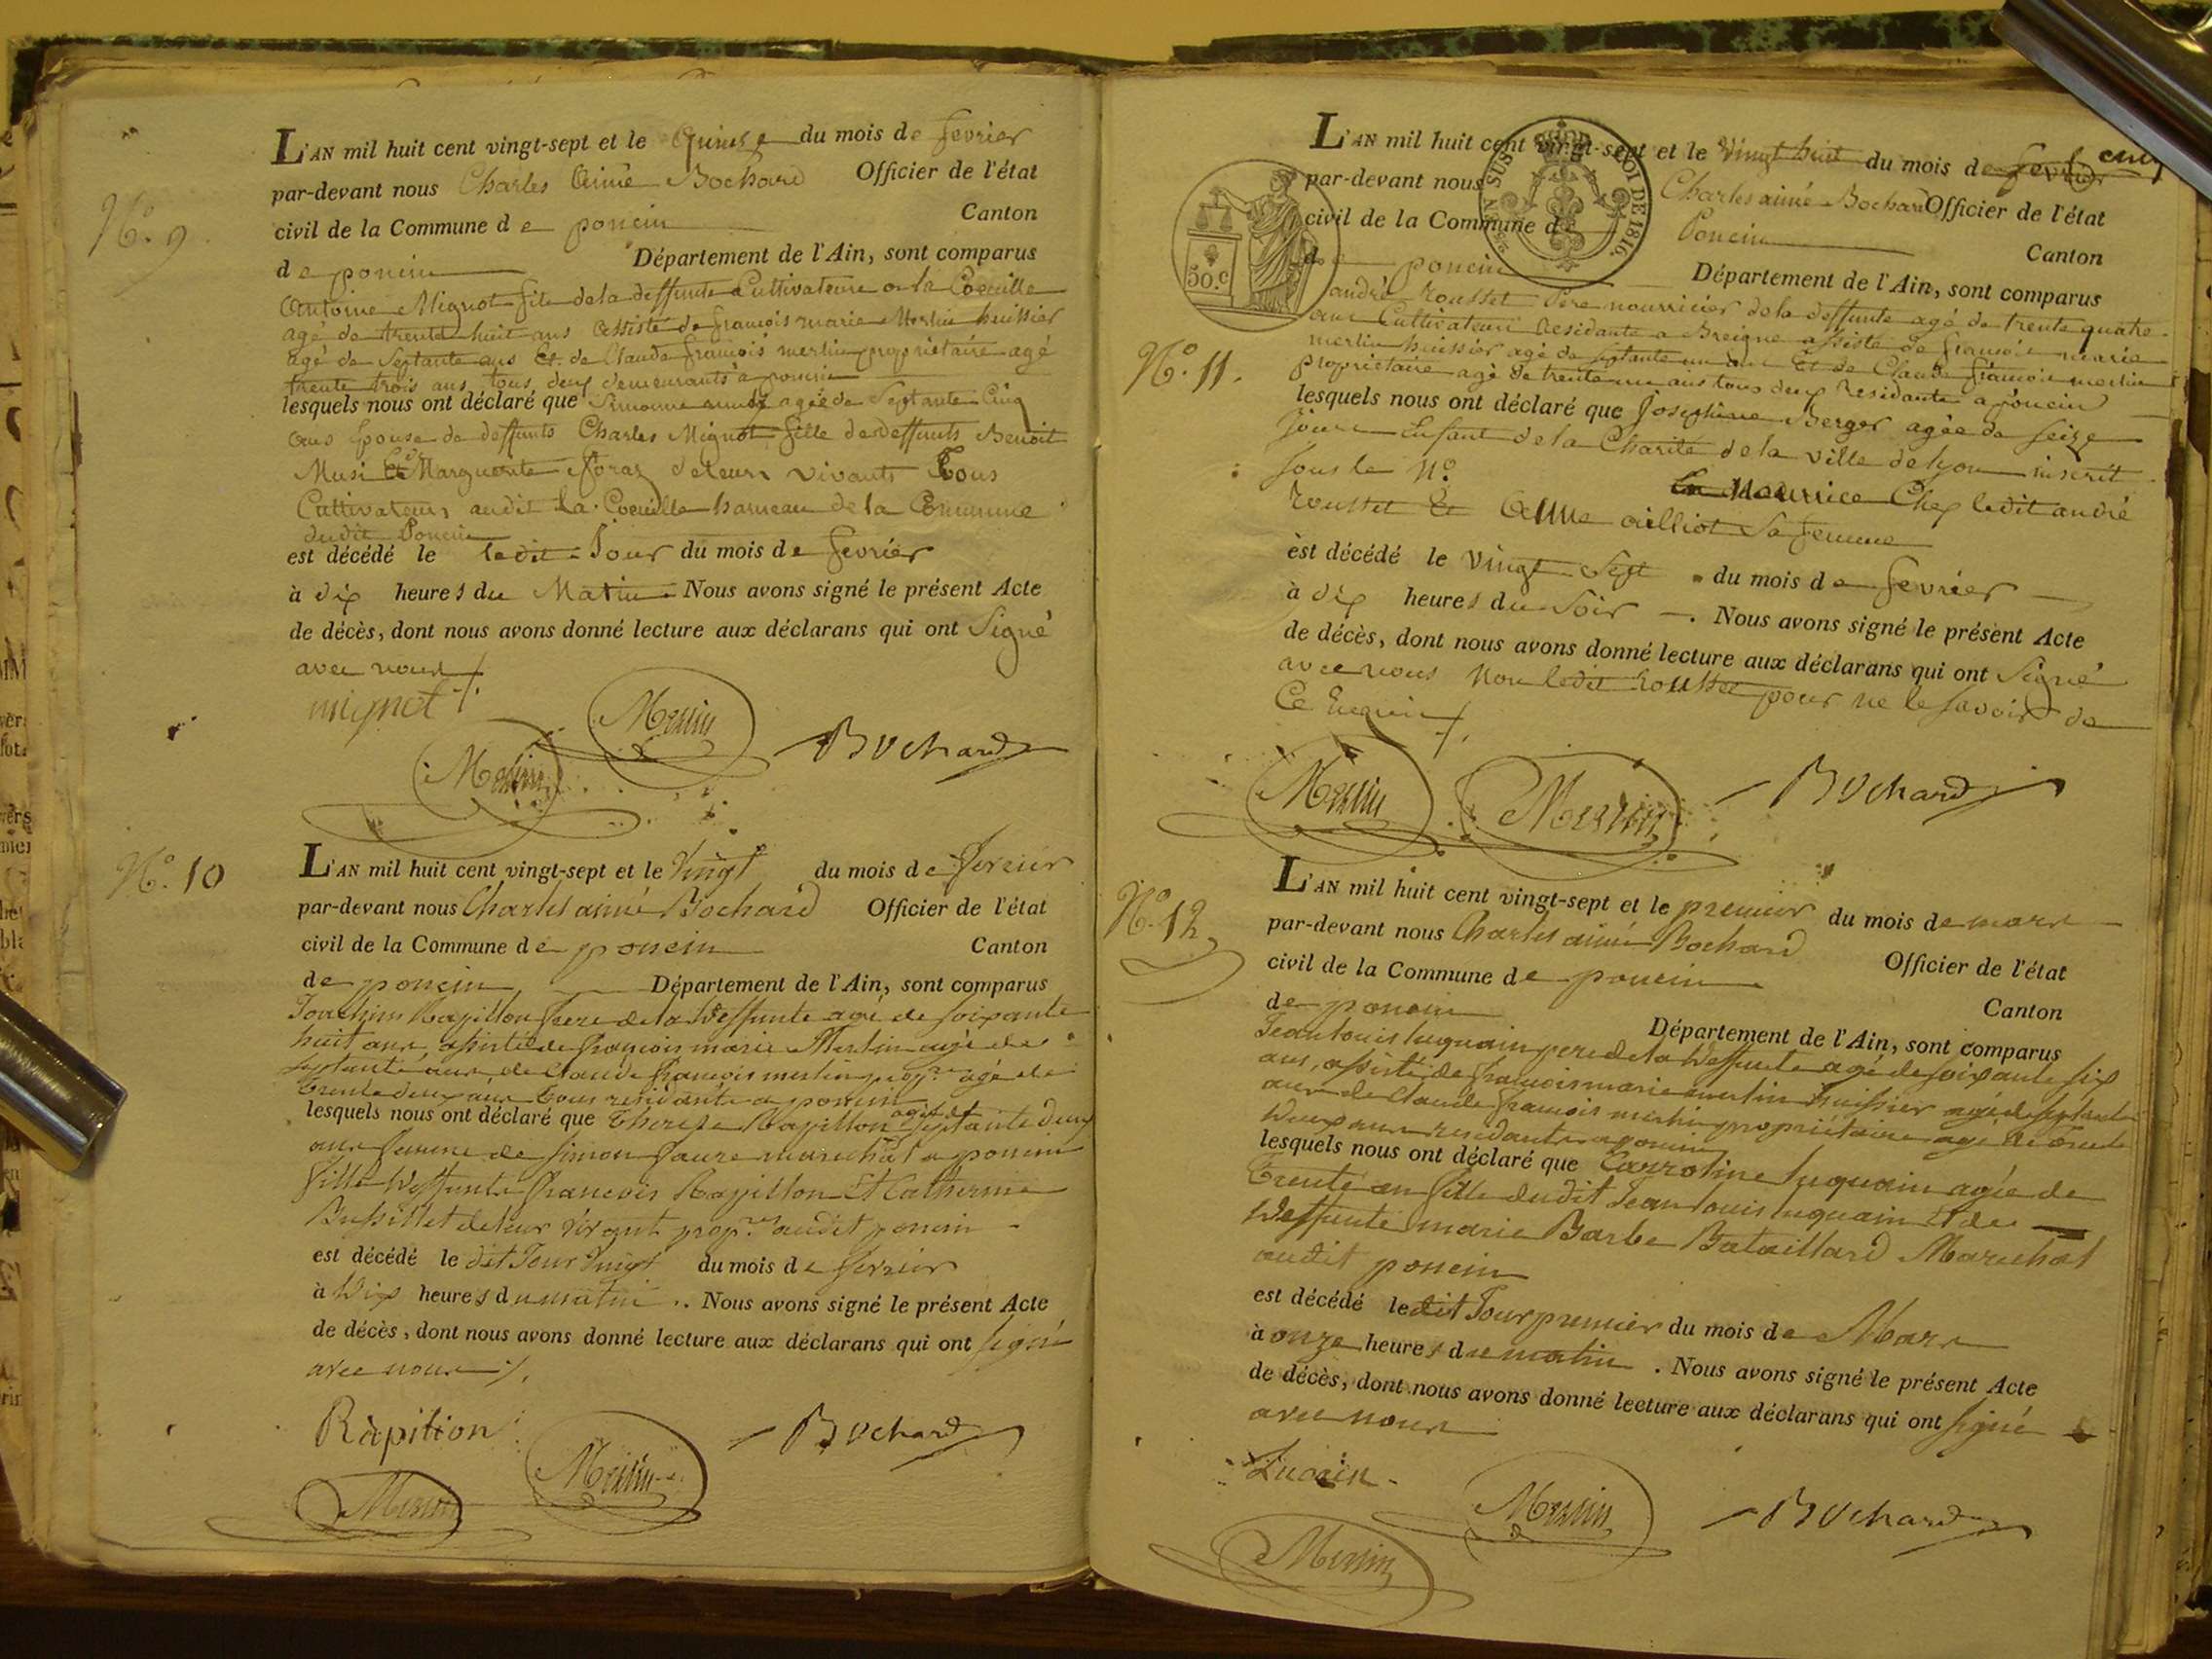 N.º 9
L'AN mil huit cent vingt-sept et le quinze du mois de fevrier
par-devant nous Charles Aimé Bochard Officier de l'état
civil de la Commune de poncin Canton
de poncin Département de l'Ain, sont comparus
Antoine Mignot fils de la deffunte Cultivateur a la Coeuille
agé de trente huit ans Assisté de françois marie Merlin huissier
agé de Septante ans Et de Claude françois merlin proprietaire agé
trente trois ans tous deux demeurants a poncin
lesquels nous ont déclaré que Simonne agée de Septante Cinq
ans Epouse de deffunts Charles Mignot fille des deffunts Benoit
Musi Et Marguerite de leurs vivants Tous
Cultivateurs audit La Coeuille hameau de la Commune
dudit Poncin
est décédé le ledit Jour du mois de fevrier
à dix heures du Matin Nous avons signé le présent Acte
de décès, dont nous avons donné lecture aux déclarans qui ont Signé
avec nous
mignot
Merlin
Merlin
Bochard
N.º 10
L'AN mil huit cent vingt-sept et le Vingt du mois de fevrier
par-devant nous Charles aimé Bochard Officier de l'état
civil de la Commune de poncin Canton
de poncin Département de l'Ain, sont comparus
Joachim Rapillon frere de la deffunte agé de soixante
huit ans, assisté de françois marie Merlin agé de
septante ans de Claude françois merlin prop.re agé de
trente deux ans tous residants a poncin
lesquels nous ont déclaré que Therese Rapillon agée de septante deux
ans femme de simon faure marechal a poncin
fille deffunts francois Rapillon Et Catherine
Bussillet de leur vivant prop.res audit poncin
est décédé le dit Jour vingt du mois de fevrier
à dix heures du matin .. Nous avons signé le présent Acte
de décès, dont nous avons donné lecture aux déclarans qui ont signé
avec nous
Rapillon
Merlin
Merlin
Bochard
50.c
EN SUS
LOI DE 1816.
N.º 11.
L'AN mil huit cent vingt-sept et le Vingt huit du mois de fevrier
par-devant nous Charles aimé Bochard Officier de l'état
civil de la Commune de Poncin Canton
de poncin Département de l'Ain, sont comparus
andré rousset Pere nourricier de la deffunte agé de trente quatre
ans Cultivateur Residante a Breigne assisté de françois marie
merlin huissier agé de septante un ans Et de Claude françois merlin
proprietaire agé de trente un ans tous deux Residants a poncin
lesquels nous ont déclaré que Josephine Berger agée de seize
jours Enfant de la Charité de la ville de lyon inscrit
sous le N.º
En Nourrice Chez ledit andré
rousset Et Anne ailliot Sa femme
est décédé le Vingt Sept du mois de fevrier
à dix heures du soir . Nous avons signé le présent Acte
de décès, dont nous avons donné lecture aux déclarans qui ont Signé
avec nous Non ledit rousset pour ne le savoir de
Ce Enquis
Merlin
Merlin
Bochard
N.º 12
L'AN mil huit cent vingt-sept et le premier du mois de mars
par-devant nous Charles aimé Bochard Officier de l'état
civil de la Commune de poncin Canton
de poncin Département de l'Ain, sont comparus
Jean louis luquain pere de la deffunte agé de soixante six
ans, assisté de francois marie merlin huissier agé de septante
ans de Claude francois merlin proprietaire agé de trente
deux ans residants a poncin
lesquels nous ont déclaré que Carroline luquain agée de
trente an fille dudit Jean louis luquain Et de
deffunte marie Barbe Bataillard Marechal
audit poncin
est décédé ledit Jour premier du mois de Mars
à onze heures du matin . Nous avons signé le présent Acte
de décès, dont nous avons donné lecture aux déclarans qui ont signé
avec nous
Merlin
Merlin
Bochard